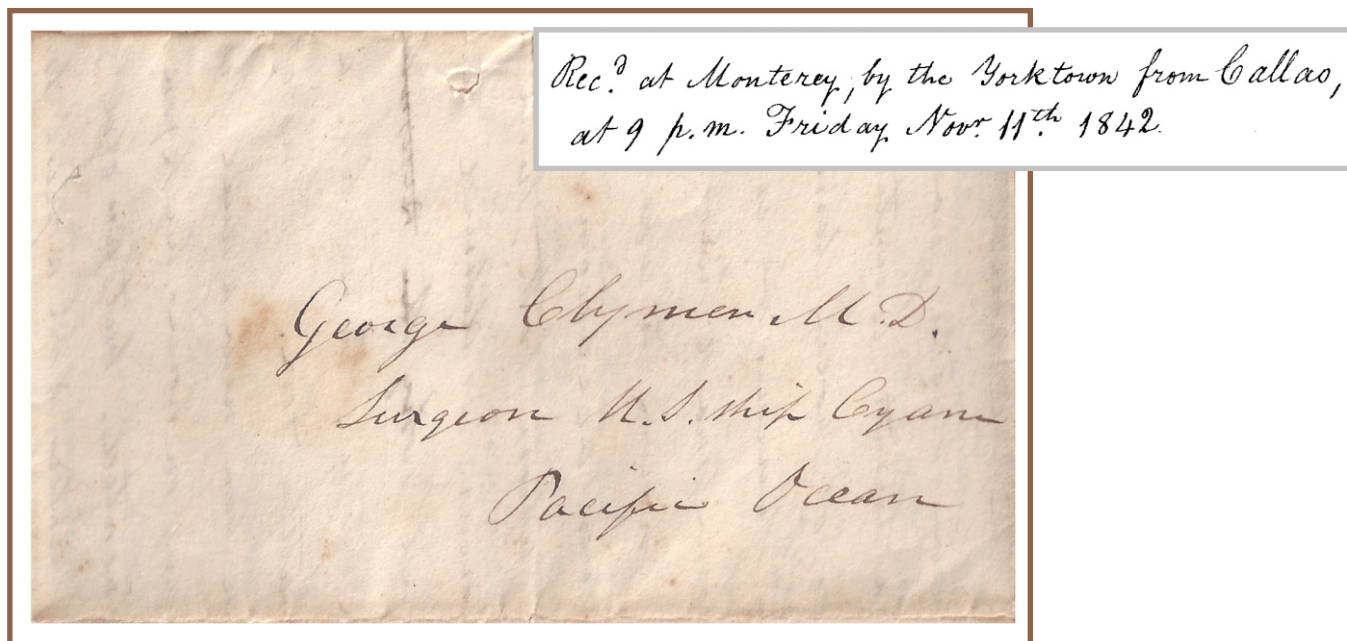 Rec.d at Monterey, by the Yorktown from Callao,
at 9 p.m. Friday Novr. 11th. 1842.
George Clymer M.D.
Surgeon U.S. ship Cyane
Pacific Ocean